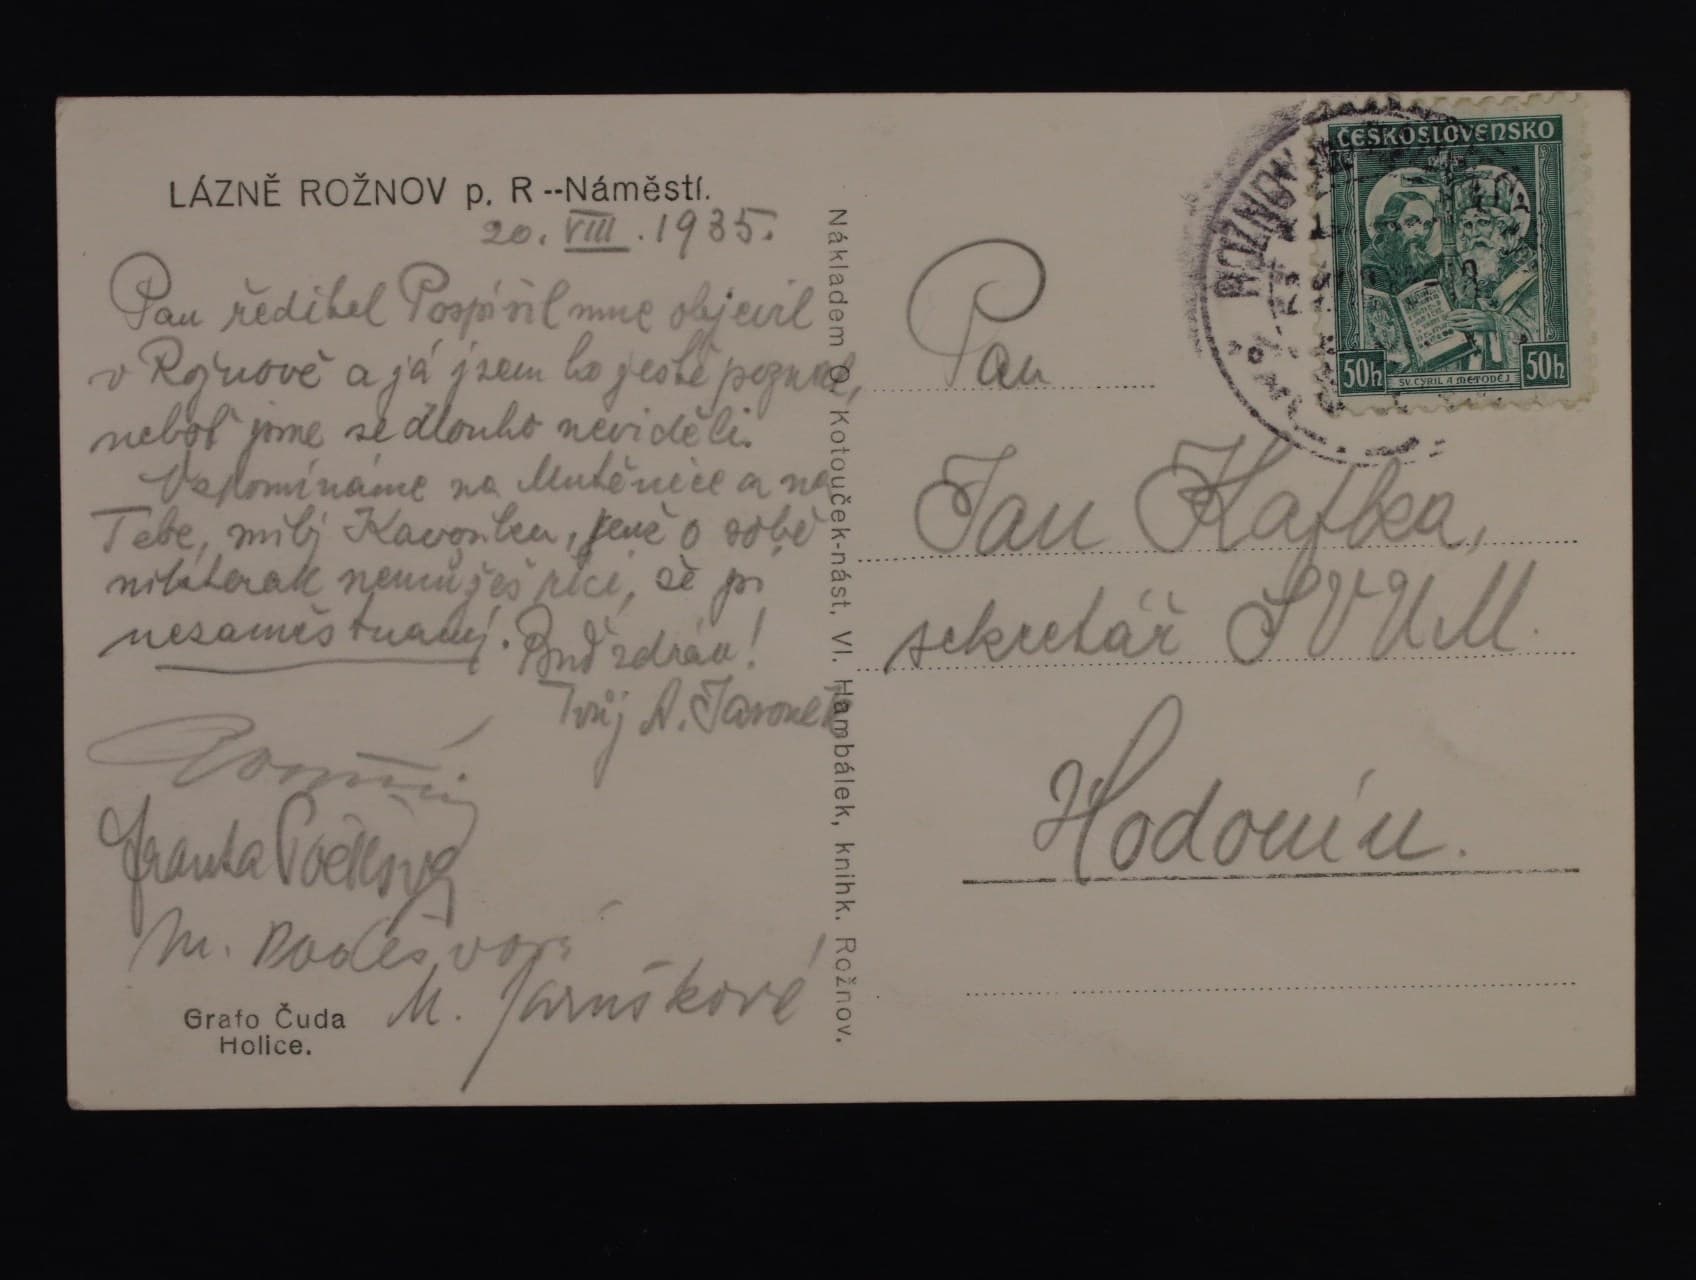 LÁZNĚ ROŽNOV p. R --Náměstí.
20. VIII. 1935.
Pan ředitel Pospíšil mne objevil
v Rožnově a já jsem ho ještě poznal,
neboť jsme se dlouho neviděli.
Vzpomínáme na Mutěnice a na
Tebe, milý
o sobě
nikterak nemůžeš říci, že jsi
nezaměstnaný. Buď zdráv!
Tvůj A.
Franta
M.
M. Jarušková
Grafo Čuda
Holice.
Nákladem O. Kotouček-nást. Vl. Hambálek, knihk. Rožnov.
ČESKOSLOVENSKO
50h
SV. CYRIL A METODĚJ
50h
ROŽNOV
Pan
Jan Kafka,
sekretář SVUM.
Hodonín.